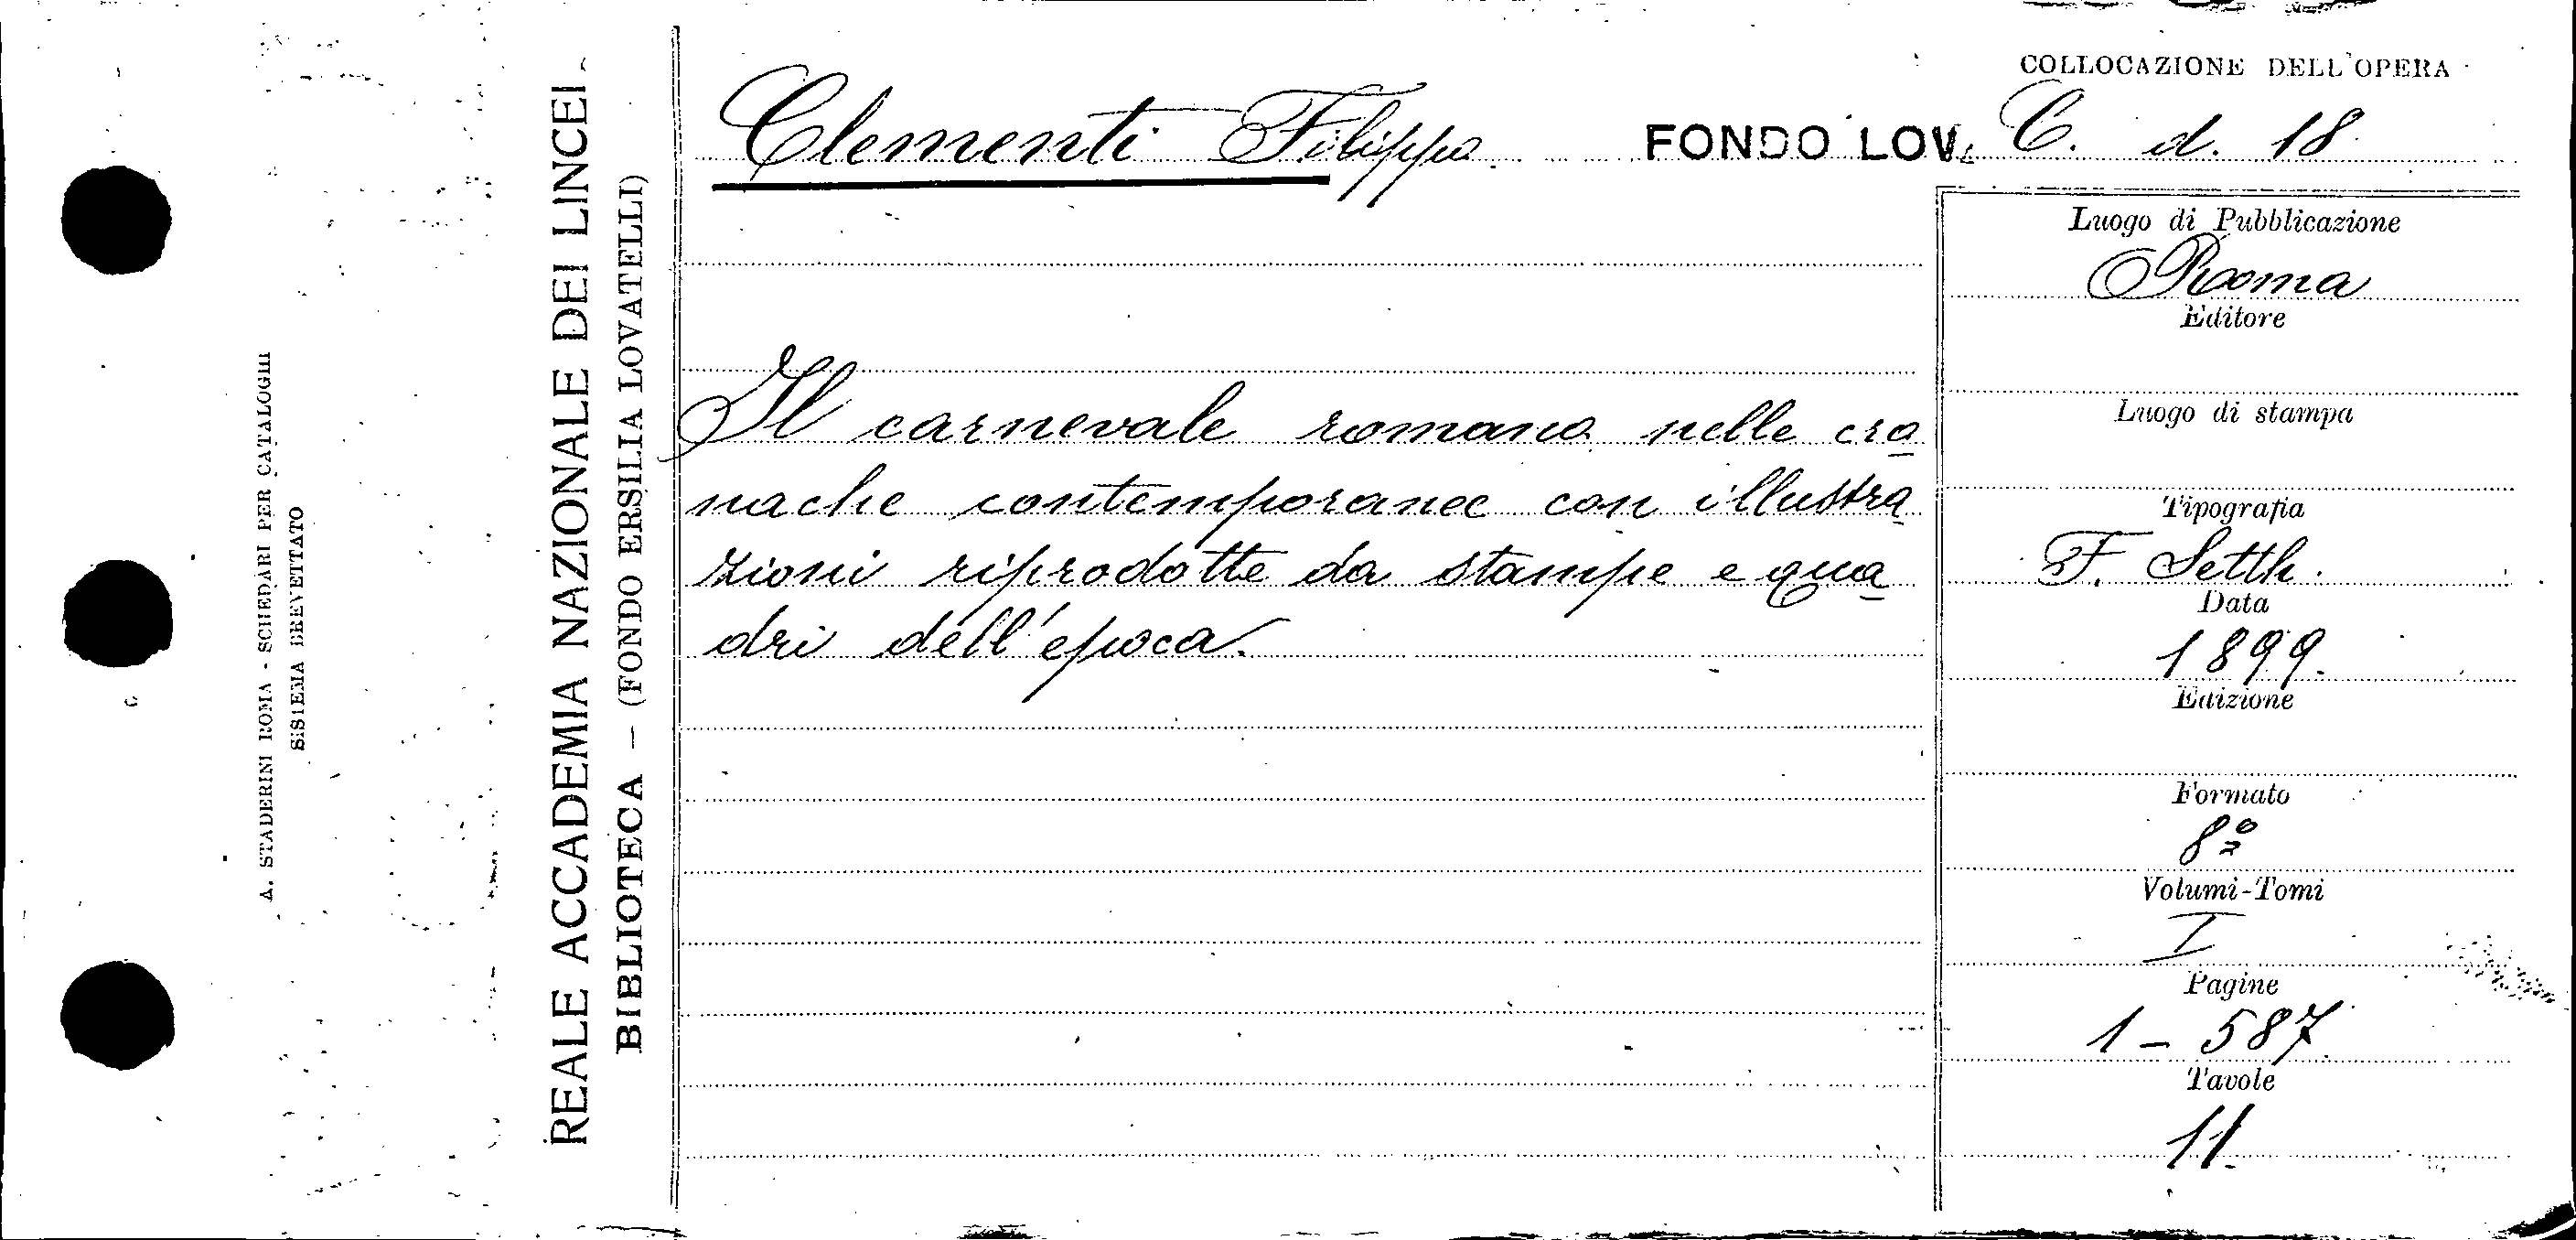 A. STADERINI ROMA - SCHEDARI PER CATALOGHI
SISTEMA BREVETTATO
REALE ACCADEMIA NAZIONALE DEI LINCEI
BIBLIOTECA — (FONDO ERSILIA LOVATELLI)
COLLOCAZIONE DELL'OPERA
Clementi Filippo. FONDO LOV. C. d. 18
Il carnevale romano nelle cro
nache contemporanee con illustra
zioni riprodotte da stampe e qua
dri dell'epoca.
Luogo di Pubblicazione
Roma
Editore
Luogo di stampa
Tipografia
F. Setth.
Data
1899.
Edizione
Formato
8º
Volumi-Tomi
I
Pagine
1 - 587.
Tavole
11.